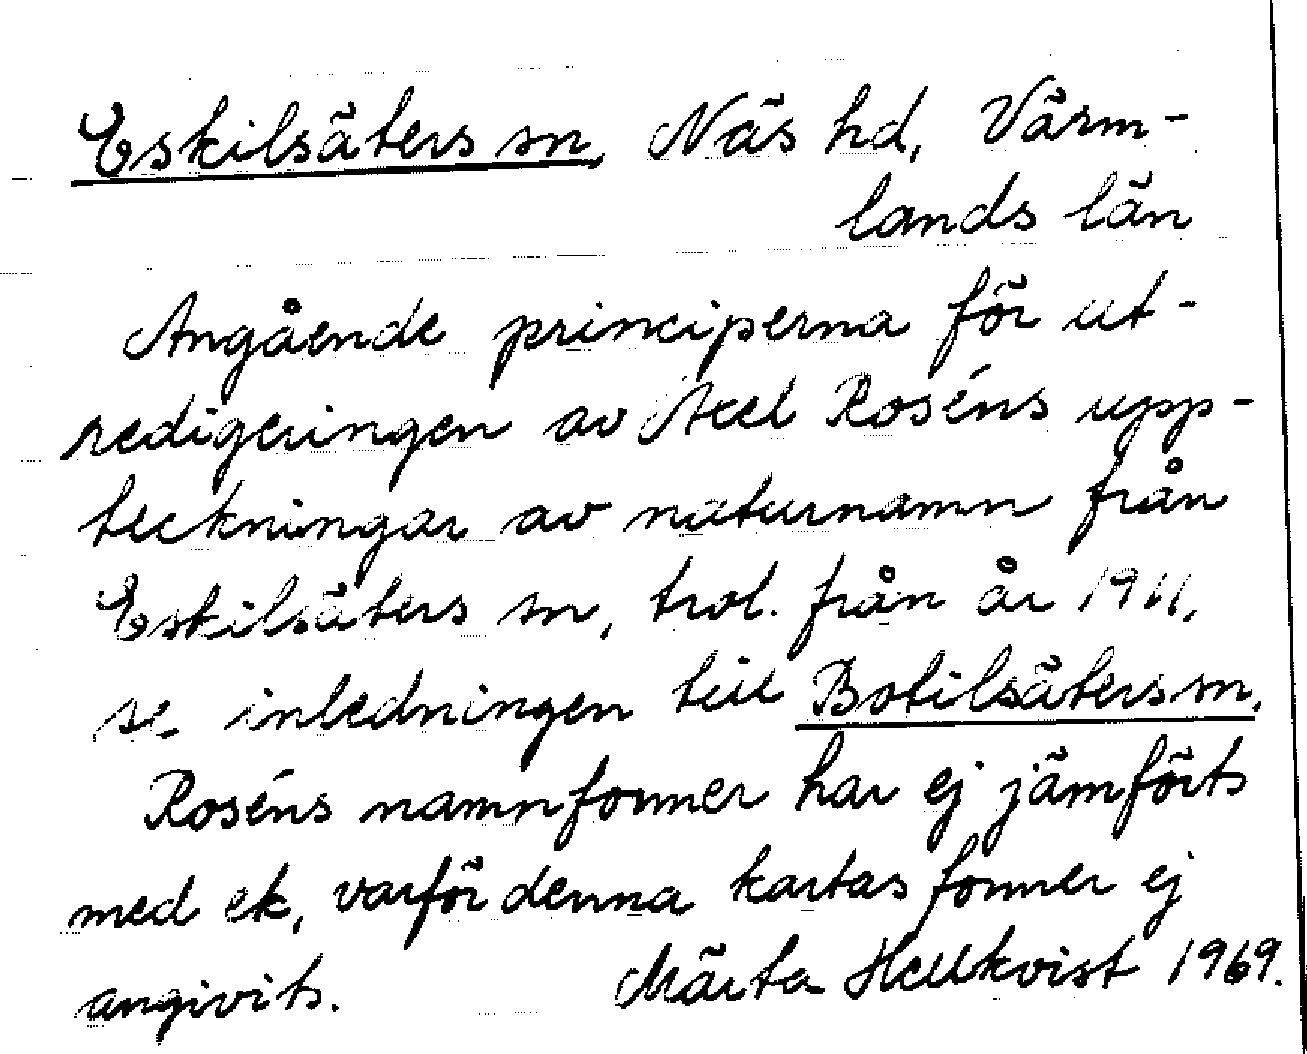 Eskilsäters sn, Näs hd, Värm-
lands län
Angående principerna för ut-
redigeringen av Axel Roséns upp-
teckningar av naturnamn från
Eskilsäters sn, trol. från år 1911,
se inledningen till Botilsäters sn.
Roséns namnformer har ej jämförts
med ek, varför denna kartas former ej
angivits. Märta Hellkvist 1969.